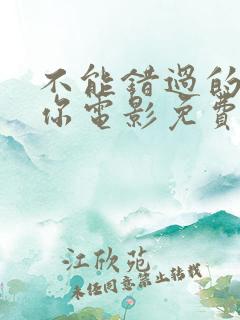 不能錯過的
你電影免費
江欣苑
未经同意禁止转载